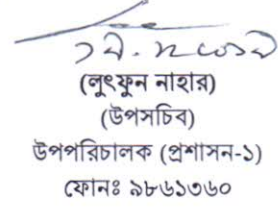 (লুৎফুন নাহার)
(উপসচিব)
উপপরিচালক (প্রশাসন-১)
ফোনঃ ৯৮৬১৩৬০